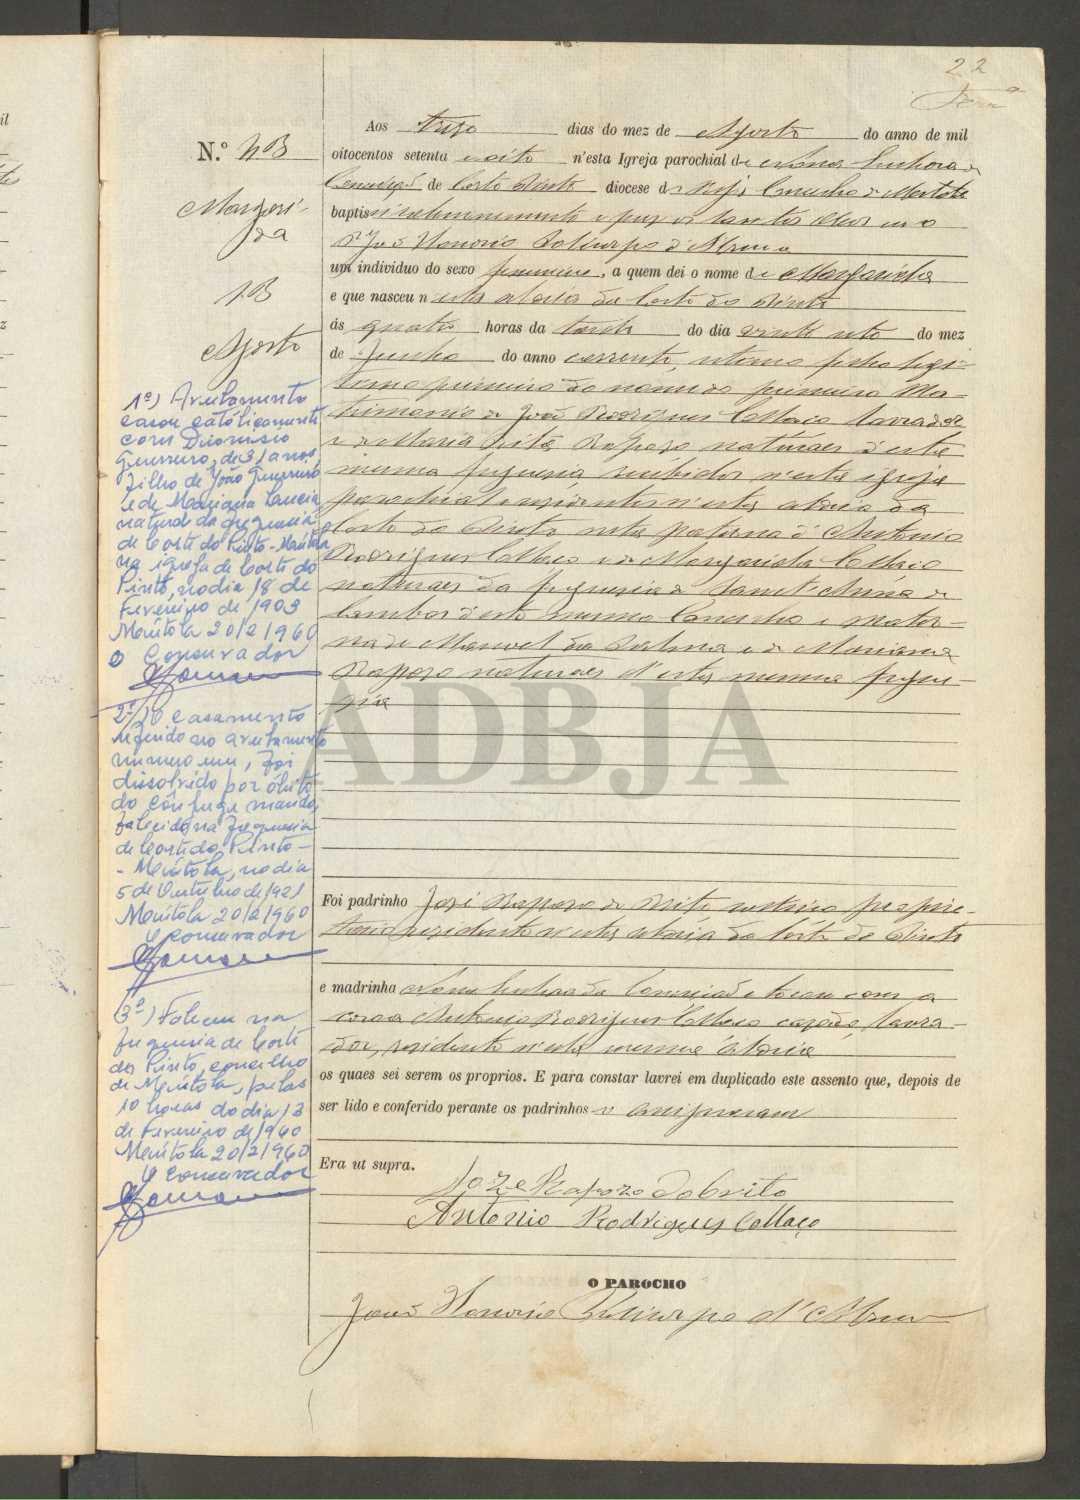 22
N.º 43
Margari-
da
13
Agosto
Aos treze dias do mez de Agosto do anno de mil
oitocentos setenta e oito n'esta Igreja parochial de Nossa Senhora da
Conceição de Corte do Pinto diocese de Beja Concelho de Mertola
baptisei solemnemente e puz os santos oleos eu o
P.e João Honorio Policarpo d'Abreu a
um individuo do sexo feminino, a quem dei o nome de Margarida
e que nasceu n'esta aldeia da Corte do Pinto
ás quatro horas da tarde do dia vinte oito do mez
de Junho do anno corrente,
primeiro do nome do primeiro Ma-
trimonio de João Rodrigues Collaço lavrador
e de Maria Rita Raposo naturaes d'esta
mesma freguesia, recebidos n'esta igreja
parochial e residentes n'esta aldeia da
Corte do Pinto, neta paterna d'Antonio
Rodrigues Collaço e de Margarida Collaço
naturaes da freguesia de Sant'Anna de
Cambas d'este mesmo Concelho e mater-
na de Manoel da Palma e de Marianna
Raposo naturaes d'esta mesma fregue-
sia
Foi padrinho José Raposo de Brito solteiro proprie-
tario residente n'esta aldeia da Corte do Pinto
e madrinha Nossa Senhora da Conceição e tocou com a
coroa Antonio Rodrigues Collaço casado, lavra-
dor, residente n'esta mesma aldeia
os quaes sei serem os proprios. E para constar lavrei em duplicado este assento que, depois de
ser lido e conferido perante os padrinhos o assignaram
Era ut supra.
Joze Rapozo de Brito
Antonio Rodrigues Collaço
O PAROCHO
João Honorio Policarpo d'Abreu
1º) Averbamento
casou católicamente
com Dionisio
Guerreiro, de 31 anos,
filho de João Guerreiro
e de Mariana Lucia
natural da freguesia
de Corte do Pinto-Mértola
na igreja de Corte do
Pinto, no dia 18 de
Fevereiro de 1903
Mértola 20/2/1960
O Conservador
2º) O casamento
referido no averbamento
numero um, foi
dissolvido por óbito
do cônjuge marido,
falecido na freguesia
de Corte do Pinto-
- Mértola, no dia
5 de Outubro de 1921
Mértola 20/2/1960
O Conservador
(3º) Faleceu na
freguesia de Corte
do Pinto, concelho
de Mértola, pelas
10 horas do dia 13
de Fevereiro de 1960
Mértola 20/2/1960
O Conservador
ADBJA